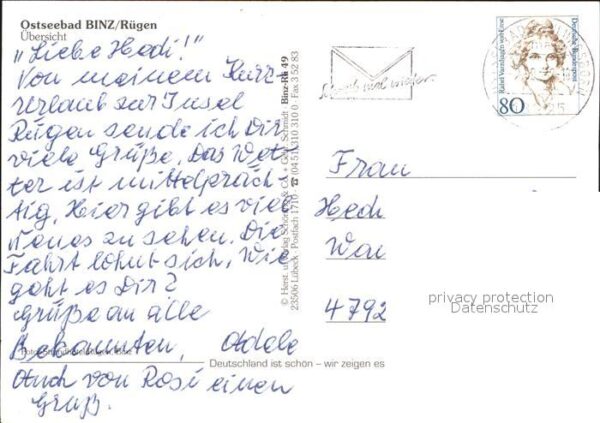 Ostseebad BINZ/Rügen
Übersicht
"Liebe Hedi!"
Von meinem Kurz-
urlaub zur Insel
Rügen sende ich Dir
viele Grüße. Das Wet-
ter ist mittelpräch-
tig, Hier gibt es viel
Neues zu sehen. Die
Fahrt lohnt sich, Wie
geht es Dir?
Grüße an alle
Bekannten, Adele
Auch von Rosi einen
Gruß.
Deutschland ist schön – wir zeigen es
Binz-Rü 49
23506 Lübeck · Postfach 1710 · ☎ (04 51) 310 310 0 · Fax 3 52 83
Schreib mal wieder
Deutsche Bundespost
Rahel Varnhagen von Ense
80
Frau
Hech
Wai
4792
privacy protection
Datenschutz